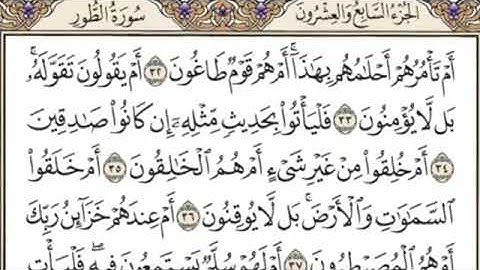 الجزء السابع والعشرون سورة الطور
أَمْ تَأْمُرُهُمْ أَحْلَٰمُهُم بِهَٰذَآ ۚ أَمْ هُمْ قَوْمٌ طَاغُونَ ٣٢ أَمْ يَقُولُونَ تَقَوَّلَهُۥ ۚ
بَل لَّا يُؤْمِنُونَ ٣٣ فَلْيَأْتُوا۟ بِحَدِيثٍ مِّثْلِهِۦٓ إِن كَانُوا۟ صَٰدِقِينَ
٣٤ أَمْ خُلِقُوا۟ مِنْ غَيْرِ شَىْءٍ أَمْ هُمُ ٱلْخَٰلِقُونَ ٣٥ أَمْ خَلَقُوا۟
ٱلسَّمَٰوَٰتِ وَٱلْأَرْضَ ۚ بَل لَّا يُوقِنُونَ ٣٦ أَمْ عِندَهُمْ خَزَآئِنُ رَبِّكَ
أَمْ هُمُ ٱلْمُصَۣيْطِرُونَ ٣٧ أَمْ لَهُمْ سُلَّمٌ يَسْتَمِعُونَ فِيهِ ۖ فَلْيَأْتِ